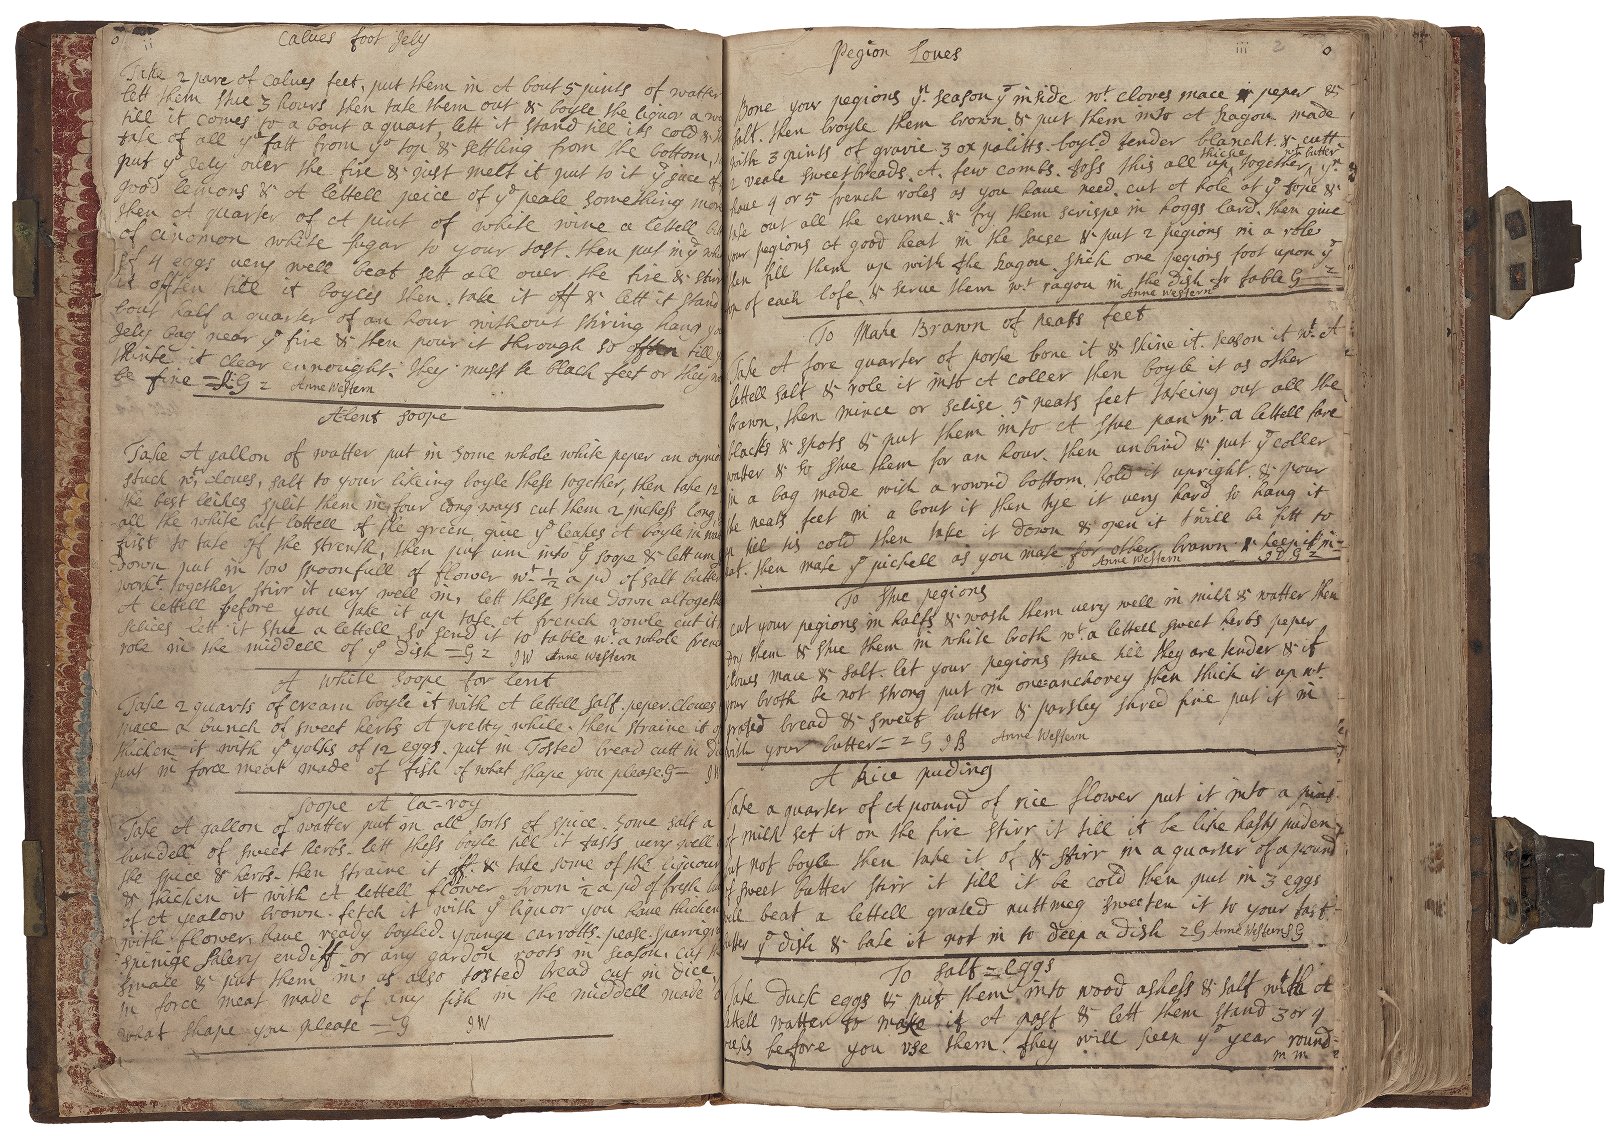 ii
Calves foot Jely
Take 2 pare of Calves feet, put them in A bout 5 pints of watter
lett them stue 3 hours then take them out & boyle the liquor a
till it comes to a bout a quart, lett it stand till its cold &
take of all yᵉ fatt from yᵉ top & settling from the bottom,
put yᵉ Jely over the fire & just melt it put to it yᵉ juce of
good lemons & A lettell peice of yᵉ peale something more
then A quarter of A pint of white wine a lettell
of cinomon white sugar to your tast. then put in yᵉ
of 4 eggs very well beat sett all over the fire & sturr
it often till it boyles then. take it off & lett it stand
bout half a quarter of an hour without stiring hang
Jely bag near yᵉ fire & then pour it through so often till
thinke it clear ennought. they must be black feet or they
be fine = G 2 Anne Western
A lent soope
Take A gallon of watter put in some whole white peper an oynion
stuck wᵗ cloves, salt to your likeing boyle these together, then take 12
the best leikes split them in four long ways cut them 2 inchess long
all the white but lettell of the green give yᵉ leakes A boyle in
first to take of the strenth, then put um into yᵉ soope & lett um
down put in tow spoonfull of flower wᵗ ½ a pd of salt butter
workt together stirr it very well in, lett these stue down altogether
A lettell before you take it up take A french rowle cut it
slices lett it stue a lettell so send it to table wᵗ a whole french
role in the middell of yᵉ dish = G 2 JW Anne Western
A white soope for lent
Take 2 quarts of cream boyle it with A lettell salt. peper. cloves
mace a bunch of sweet herbs A pretty while. then straine it
thicken it with yᵉ yolks of 12 eggs. put in Tosted bread cutt in
put in force meat made of fish of what shape you please G = JW
soope A la-roy
Take A gallon of watter put in all sorts of spice. some salt a
bundell of sweet herbs. lett thess boyle till it tasts very well
the spice & herbs. then straine it off. & take some of the liquour
& thicken it with A lettell flower brown ½ a pd of fresh
of A yealow brown. fetch it with yᵉ liquor you have thicken
with flower, have ready boyled. younge carrotts. pease. sparrigras
spinige salery endiff or any gardon roots in season, cut
smale & put them in, as also tosted bread cut in dice,
in force meat made of any fish in the middell made
what shape you please = G JW
iii 2
Pegion Loves
Bone your pegions yⁿ. season yᵉ inside wᵗ. cloves mace peper &
salt. then broyle them brown & put them into A ragou made
with 3 pints of gravie 3 ox palitts. boyl'd tender blancht. & cutt
2 veale sweetbreads. A. few combs. toss this all up together thicke wᵗ butter yⁿ
have 4 or 5 french roles as you have need. cut A hole at yᵉ tope &
take out all the crume. & fry them scrispe in hoggs lard. then give
your pegions A good heat in the sacse & put 2 pegions in a role
then fill them up with the ragou stick one pegions foot upon yᵉ
of each lofe. & serve them wᵗ ragou in the dish to table G = 2
Anne Western
To Make Brawn of neats feet
Take A fore quarter of porke bone it & skine it. season it wᵗ. A
lettell salt & role it into A coller then boyle it as other
brawn, then mince or sclise 5 neats feet takeing out all the
blacks & spots & put them into A stue pan wᵗ a lettell fare
watter & so stue them for an hour. then unbind & put yᵉ coller
in a bag made with a rownd bottom. hold it upright. & pour
the neats feet in a bout it then tye it very hard so hang it
up till tis cold then take it down & open it twill be fitt to
eat. then make yᵉ pickell as you make for other brawn & keep it in =
Anne Western G 2
To stue pegions
cut your pegions in halfs & wash them very well in milk & watter then
dry them & stue them in white broth wᵗ. a lettell sweet herbs peper
cloves mace & salt. let your pegions stue till they are tender & if
your broth be not strong put in one anchovey then thick it up wᵗ.
grated bread & sweet butter & parsley shred fine put it in
with your butter = 2 G JB Anne Western
A Rice puding
Take a quarter of A pound of rice flower put it into a pint
of milk set it on the fire stirr it till it be like hasty puden
but not boyle then take it of & stirr in a quarter of a pound
of sweet butter stirr it till it be cold then put in 3 eggs
well beat a lettell grated nuttmeg sweeten it to your tast
butter yᵉ dish & bake it not in to deep a dish 2 G Anne Westerns G
To salt = eggs
Take duck eggs & put them into wood ashess & salt with A
lettell watter to make it A past & lett them stand 3 or 4
weeks before you vse them. they will keep yᵉ year round =
m m